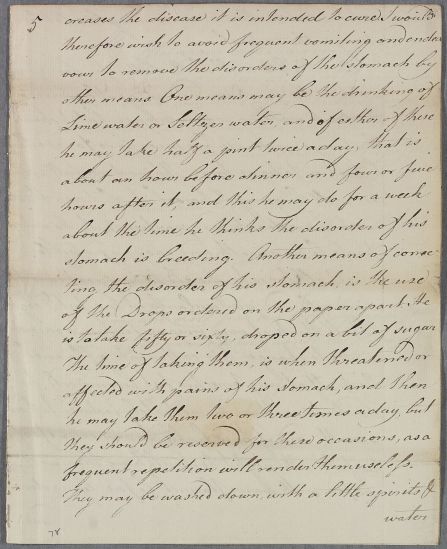 5
creases the disease it is intended to cure I would
therefore wish to avoid frequent vomiting and endea
vour to remove the disorders of the stomach by
other means One means may be the drinking of
Lime water or Seltzer water, and of either of these
he may take half a pint twice a day, that is
about an hour before dinner and four or five
hours after it, and this he may do for a week
about the time he thinks the disorder of his
stomach is breeding. Another means of correc
ting the disorder of his stomach, is the use
of the Drops ordered on the paper apart. He
is to take fifty or sixty, droped on a bit of sugar
The time of taking them, is when threatened or
affected with pains of his stomach, and then
he may take them two or three times a day, but
they should be reserved for these occasions, as a
frequent repetition will render them useless.
They may be washed down with a little spirits &
water